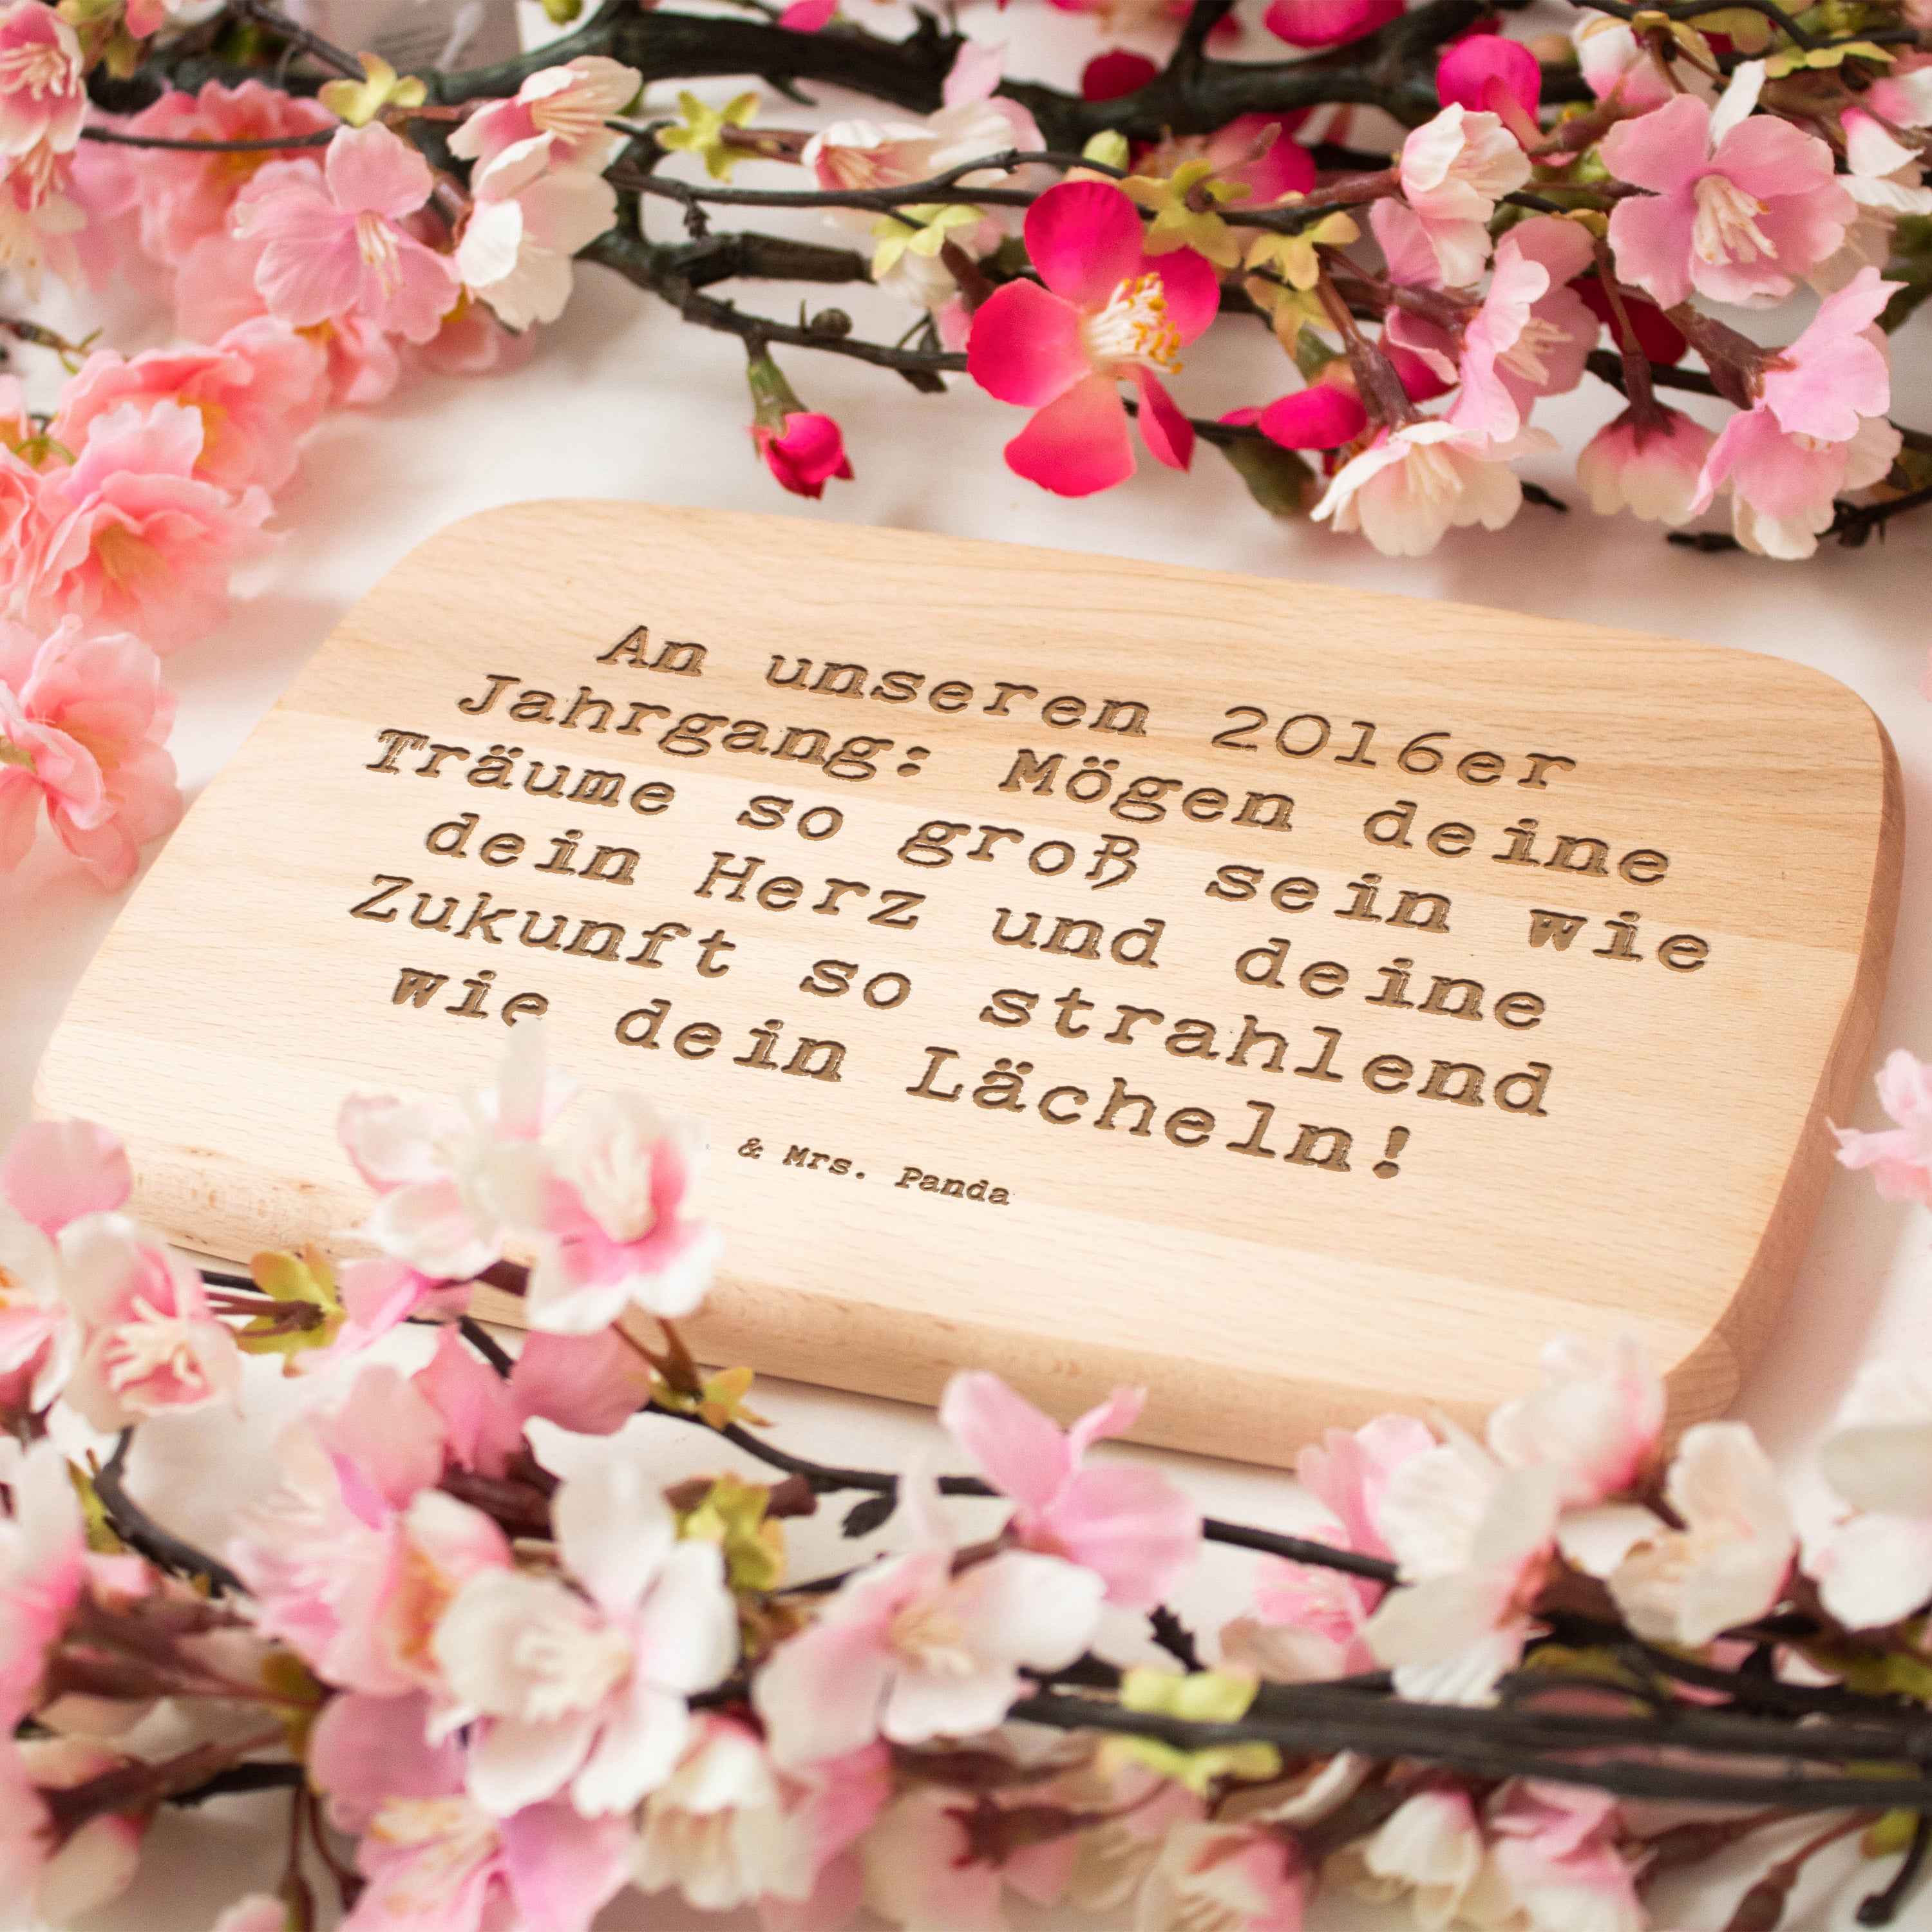 An unseren 2016er
Jahrgang: Mögen deine
Träume so groß sein wie
dein Herz und deine
Zukunft so strahlend
wie dein Lächeln!
& Mrs. Panda